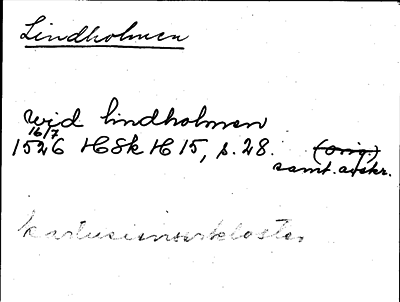 Lindholmen
wid lindholmen
16/7
1526 HSk H 15, s. 28. (orig.)
samt. avskr.
kartusianerkloster